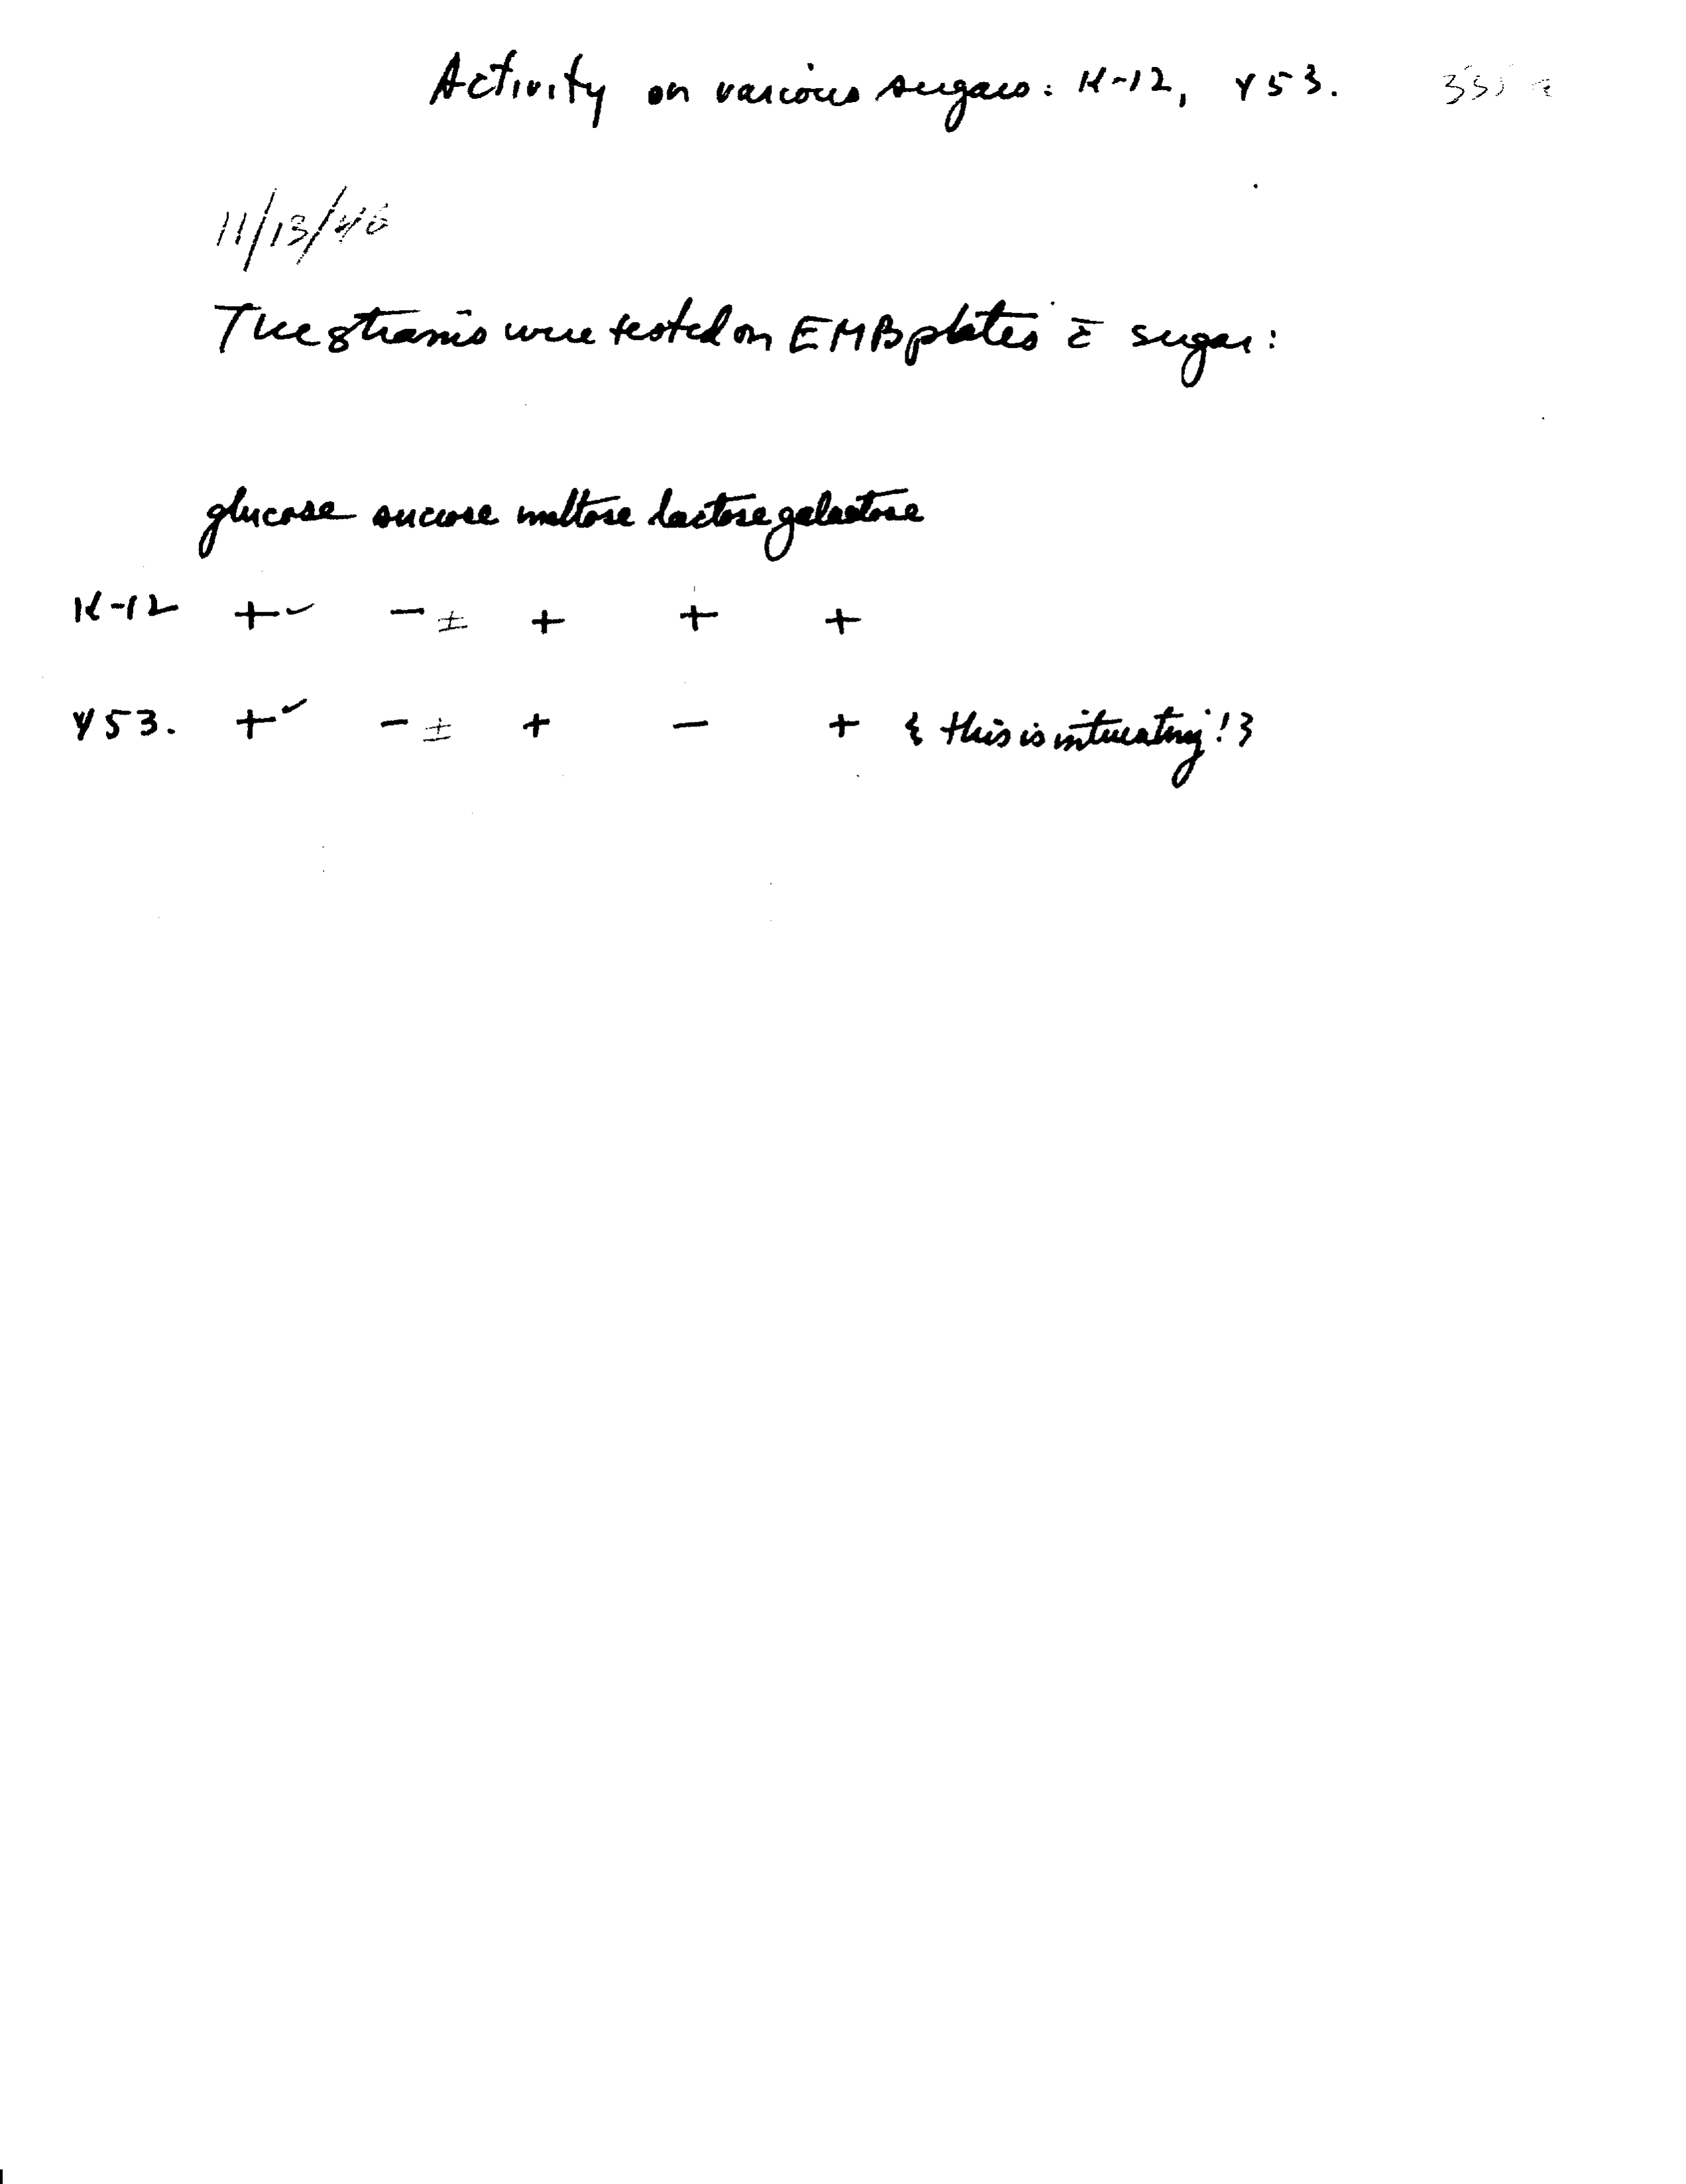 Activity on various sugars: K-12, Y53.
11/13/46
The strains were tested on EMB plates c̄ sugar:
glucose sucrose maltose lactose galactose
K-12 +✓ - ± + + +
Y53. +✓ - ± + - + { this is interesting! }